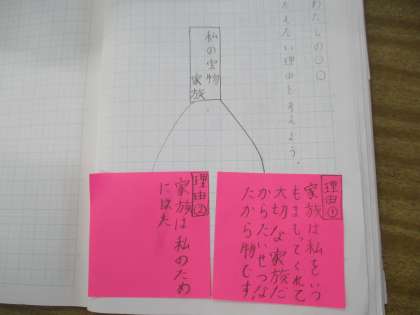 わたしの〇〇
たえたい理由を考えよう。
私の宝物
家族
理由①
家族は私をいつ
もまもってくれて
大切な家族だ
からたいせつな
たから物です
理由②
家族は私のため
に